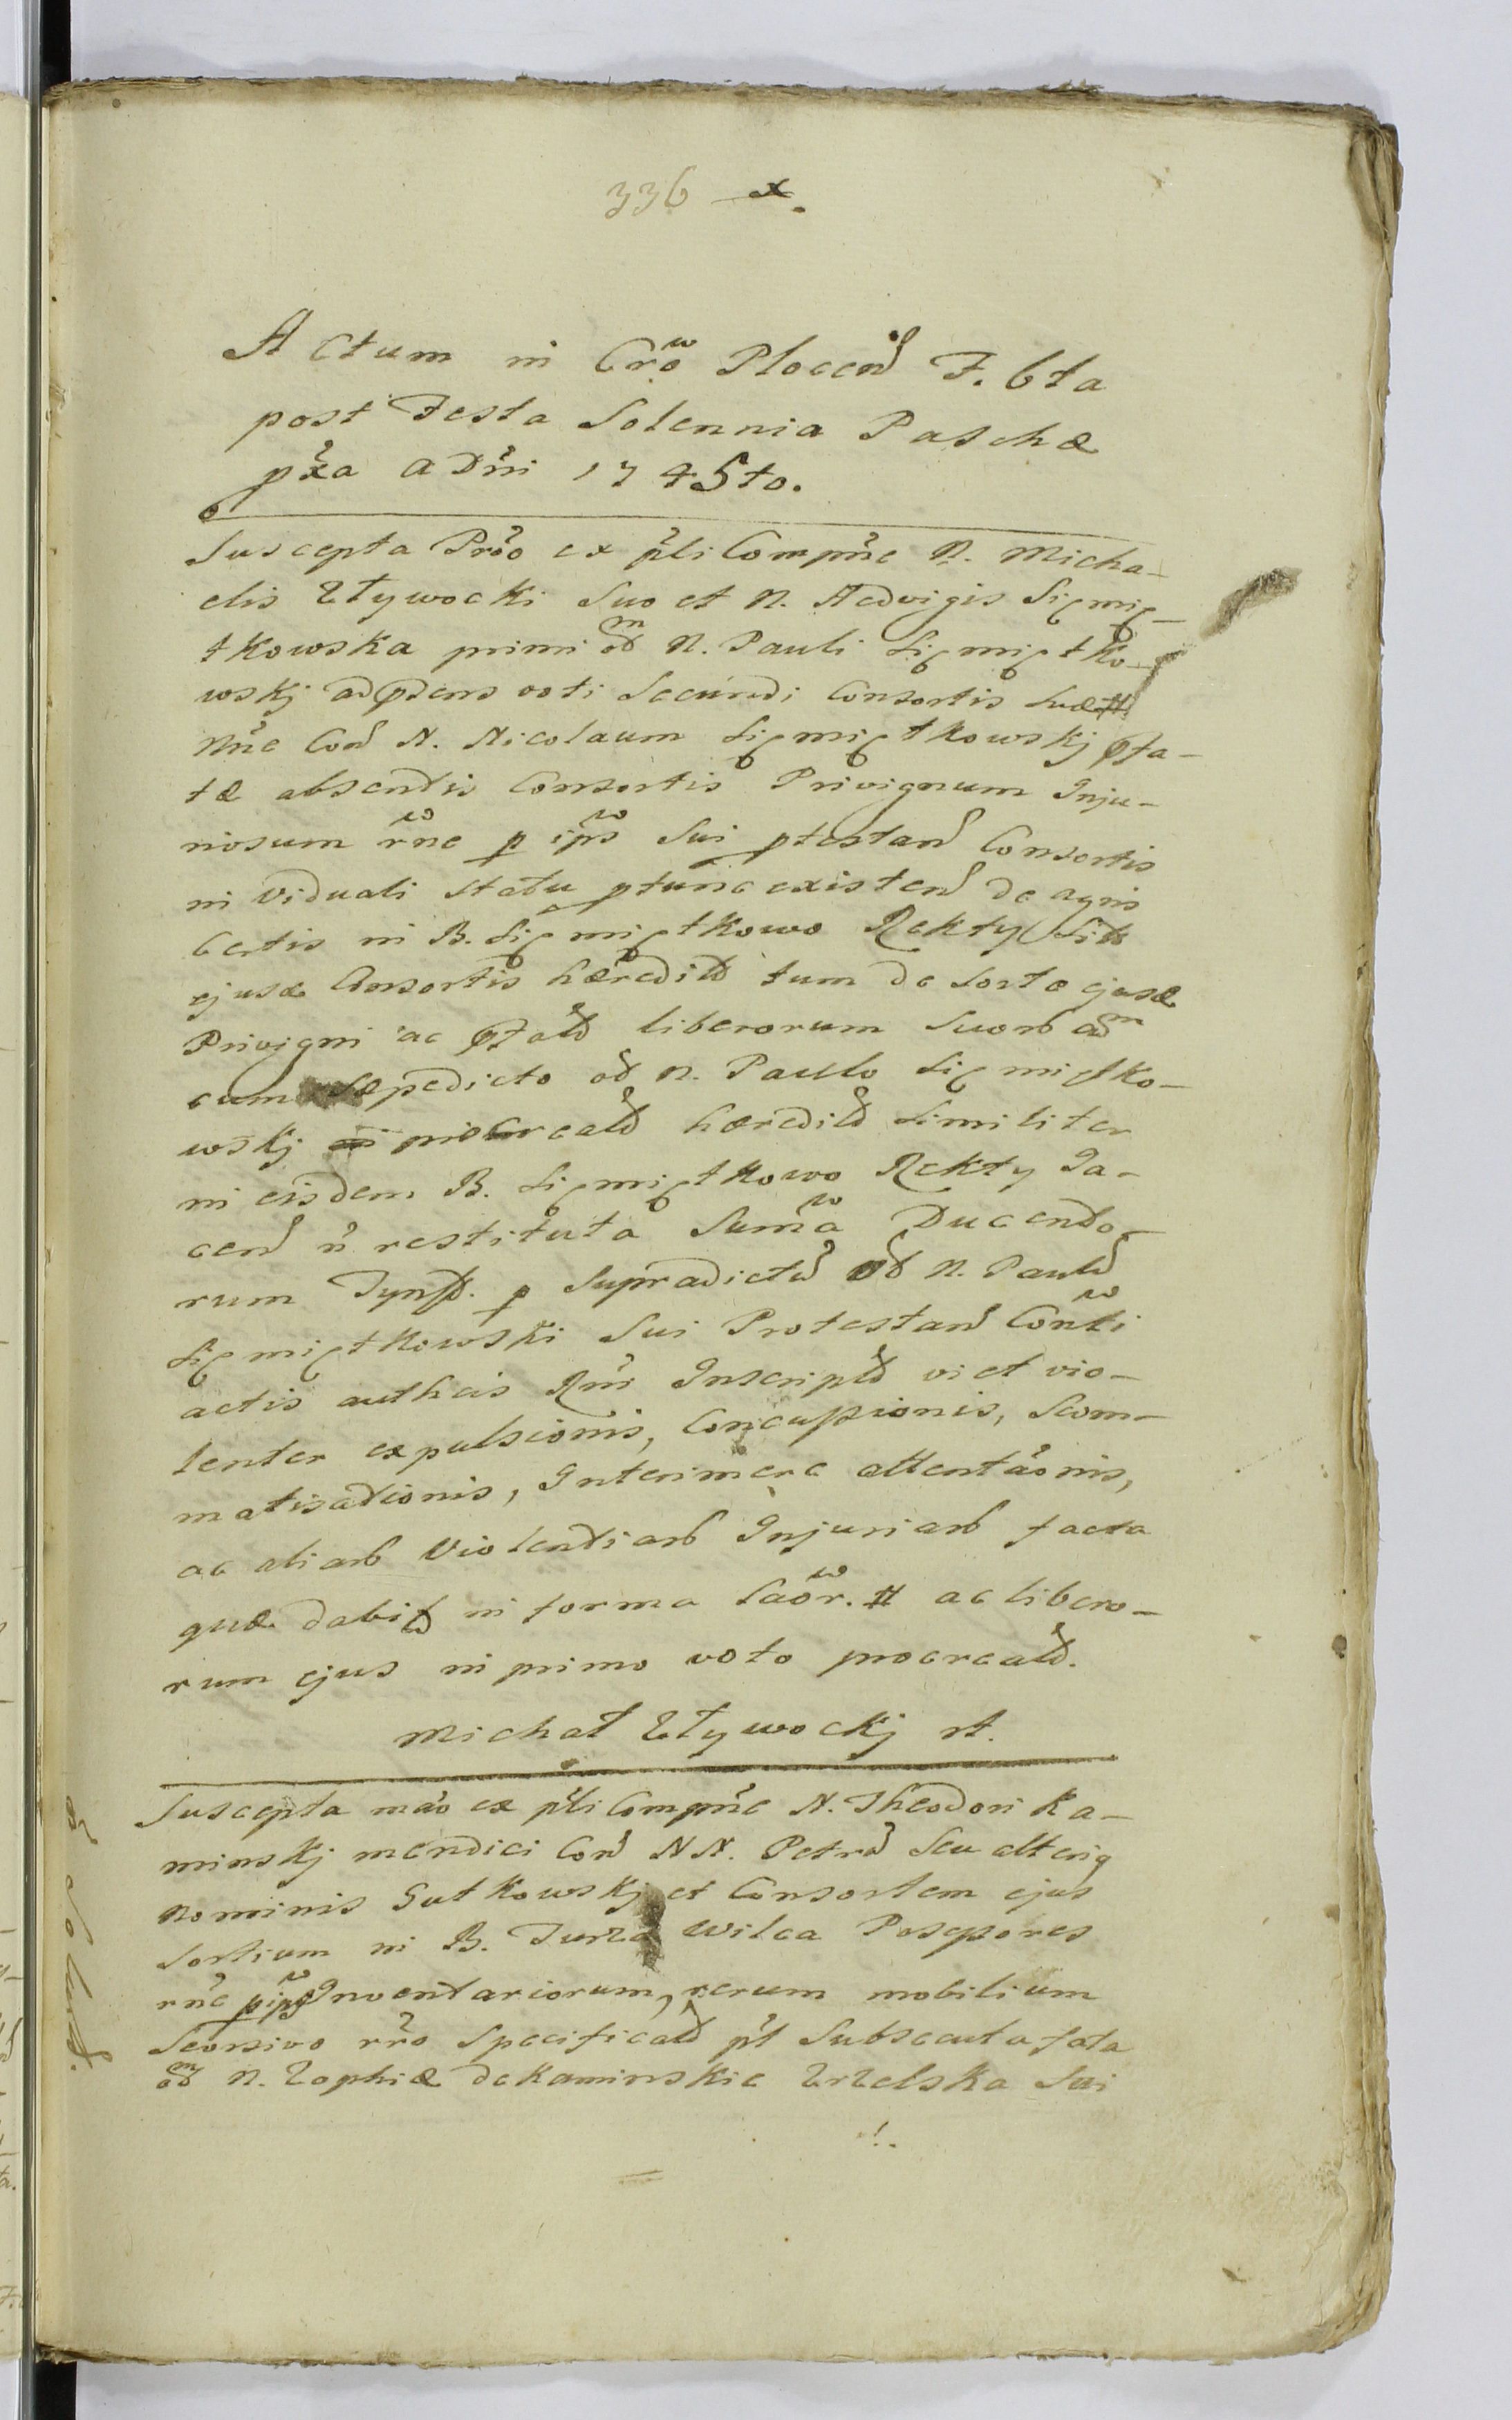 336 x.
Actum in Crõ Plocen F. 6ta
post Festa Solennia Paschæ
pxa A Dni 1745to.
Suscepta Prõo ex pli Compne N. Micha-
elis Zływocki suo et N. Hedvigis Sięmię-
tkowska primi od N. Pauli Sięmiętko-
wskj ad pdens voti Secundi Consortis suæ #
Nne Con N. Nicolaum Sięmiętkowskj pfa-
tæ absentis Consortis Privignum Inju-
riosum rne p ips Sui ptestan Consortis
in Viduali Statu ptunc existen de agris
certis in B. Sięmiętkowo Rekty Sit
ejusd Consortis hæredit tum de Sorte ejusd
Privigni ac pfat liberorum Suorb
cum sæpedicto od N. Paulo Sięmiętko-
wskj procreat hæredit Similiter
in eisdem B. Sięmiętkowo Rekty Ja-
cen n restituta Suma Ducento-
rum Tynf. p Supradict od N. Paul
Sięmiętkowski Sui Protestan Conti
actis authcis Rni Inscript vi et vio-
lenter expulsionis, Concussionis, Scom-
matisationis, Interimere attentãonis,
ac aliarb Violentiarb Injuriarb facta
quæ dabit in forma Saõr. # ac libero-
rum ejus in primo voto procreat.
Michał Zływockj A.
Suscepta mão ex pli Compne N. Theodori Ka-
minskj mendici Con NN. Petr Seu alteriq
Nominis Sutkowskj et Consortem ejus
Sortium in B. Turza Wilca Possessores
rne p ips Inventariorum, rerum mobilium
Seorsivo rro Specificat pt Subsecuta fata
od N. Zophiæ de Kaminskie Zrzelska Sui